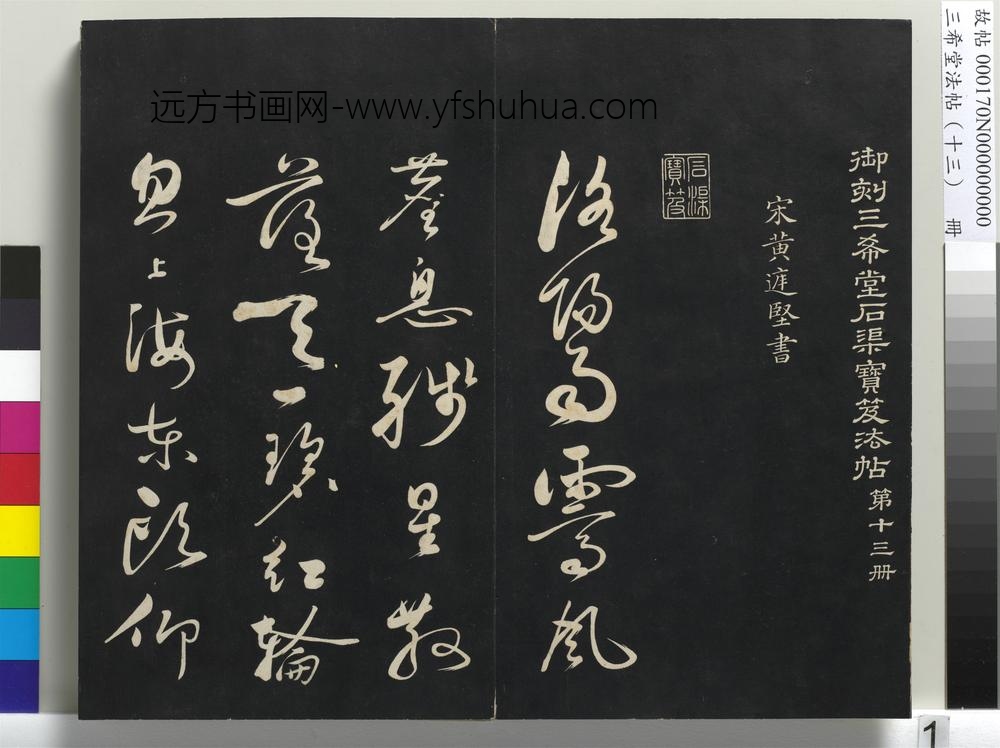 远方书画网-www.yfshuhua.com
故帖 000170N000000000
三希堂法帖（十三） 冊
御刻三希堂石渠寶笈法帖第十三冊
宋黄庭堅書
石渠寶笈
洛陽雨霽風
塵息殘星散
落天一碧紅輪
忽上海東頭仰
1